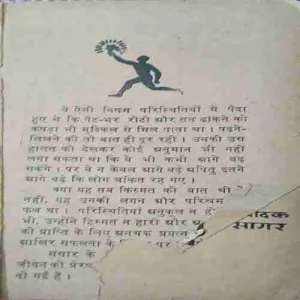 वे ऐसी विषम परिस्थितियों में पैदा
हुए थे कि पेट-भर रोटी और तन ढांकने को
कपड़ा भी मुश्किल से मिल पाता था। पढ़ने-
लिखने की तो बात ही दूर रही। उनकी उस
हालत को देखकर कोई अनुमान भी नहीं
लगा सकता था कि वे भी कभी आगे बढ़
सकेंगे। पर वे न केवल आगे बढ़े अपितु इतने
आगे बढ़े कि लोग चकित रह गए।
क्या यह सब किस्मत की बात थी
नहीं, यह उनकी लगन और परिश्रम
फल था। परिस्थितियां अनुकूल न हो
भी, उन्होंने हिम्मत न हारी और
की प्राप्ति के लिए अनथक प्रयत्न
आखिर सफलता के
संसार के
जीवन की प्रेर
दी गई हैं।
सागर